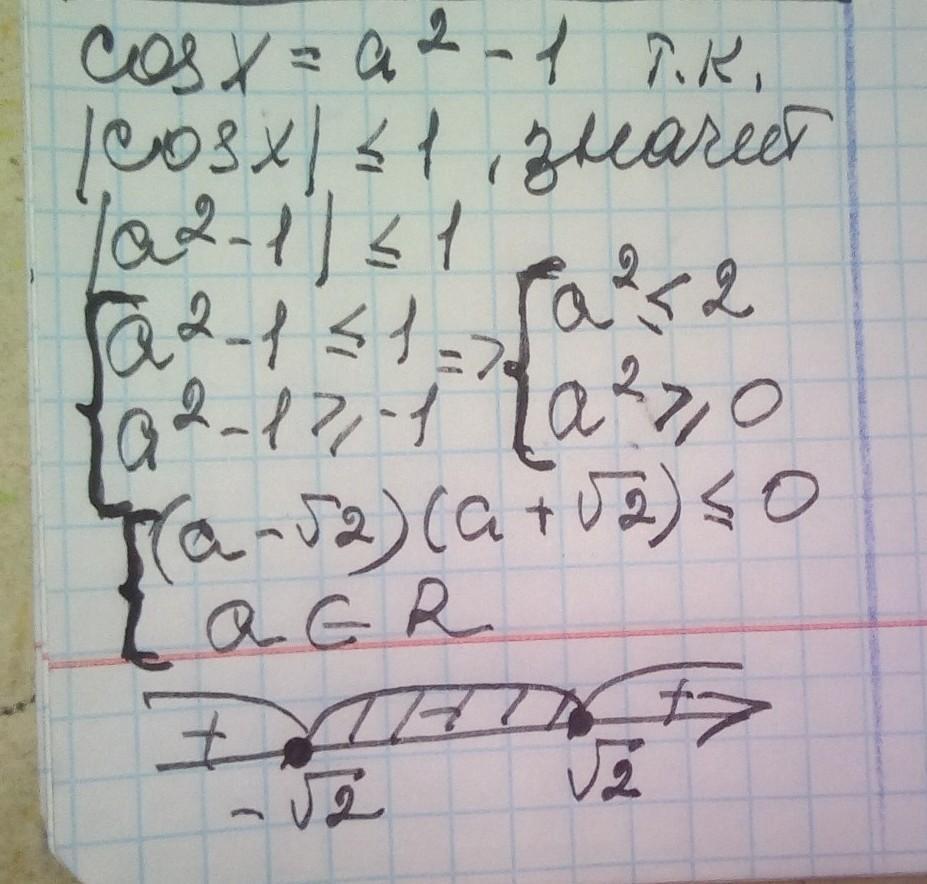 cos x = a² - 1 т.к.
|cos x| ≤ 1, значит
|a² - 1| ≤ 1
{ a² - 1 ≤ 1 => { a² ≤ 2
a² - 1 ≥ -1 a² ≥ 0
{ (a - √2)(a + √2) ≤ 0
a ∈ R
+ - +
-√2 √2